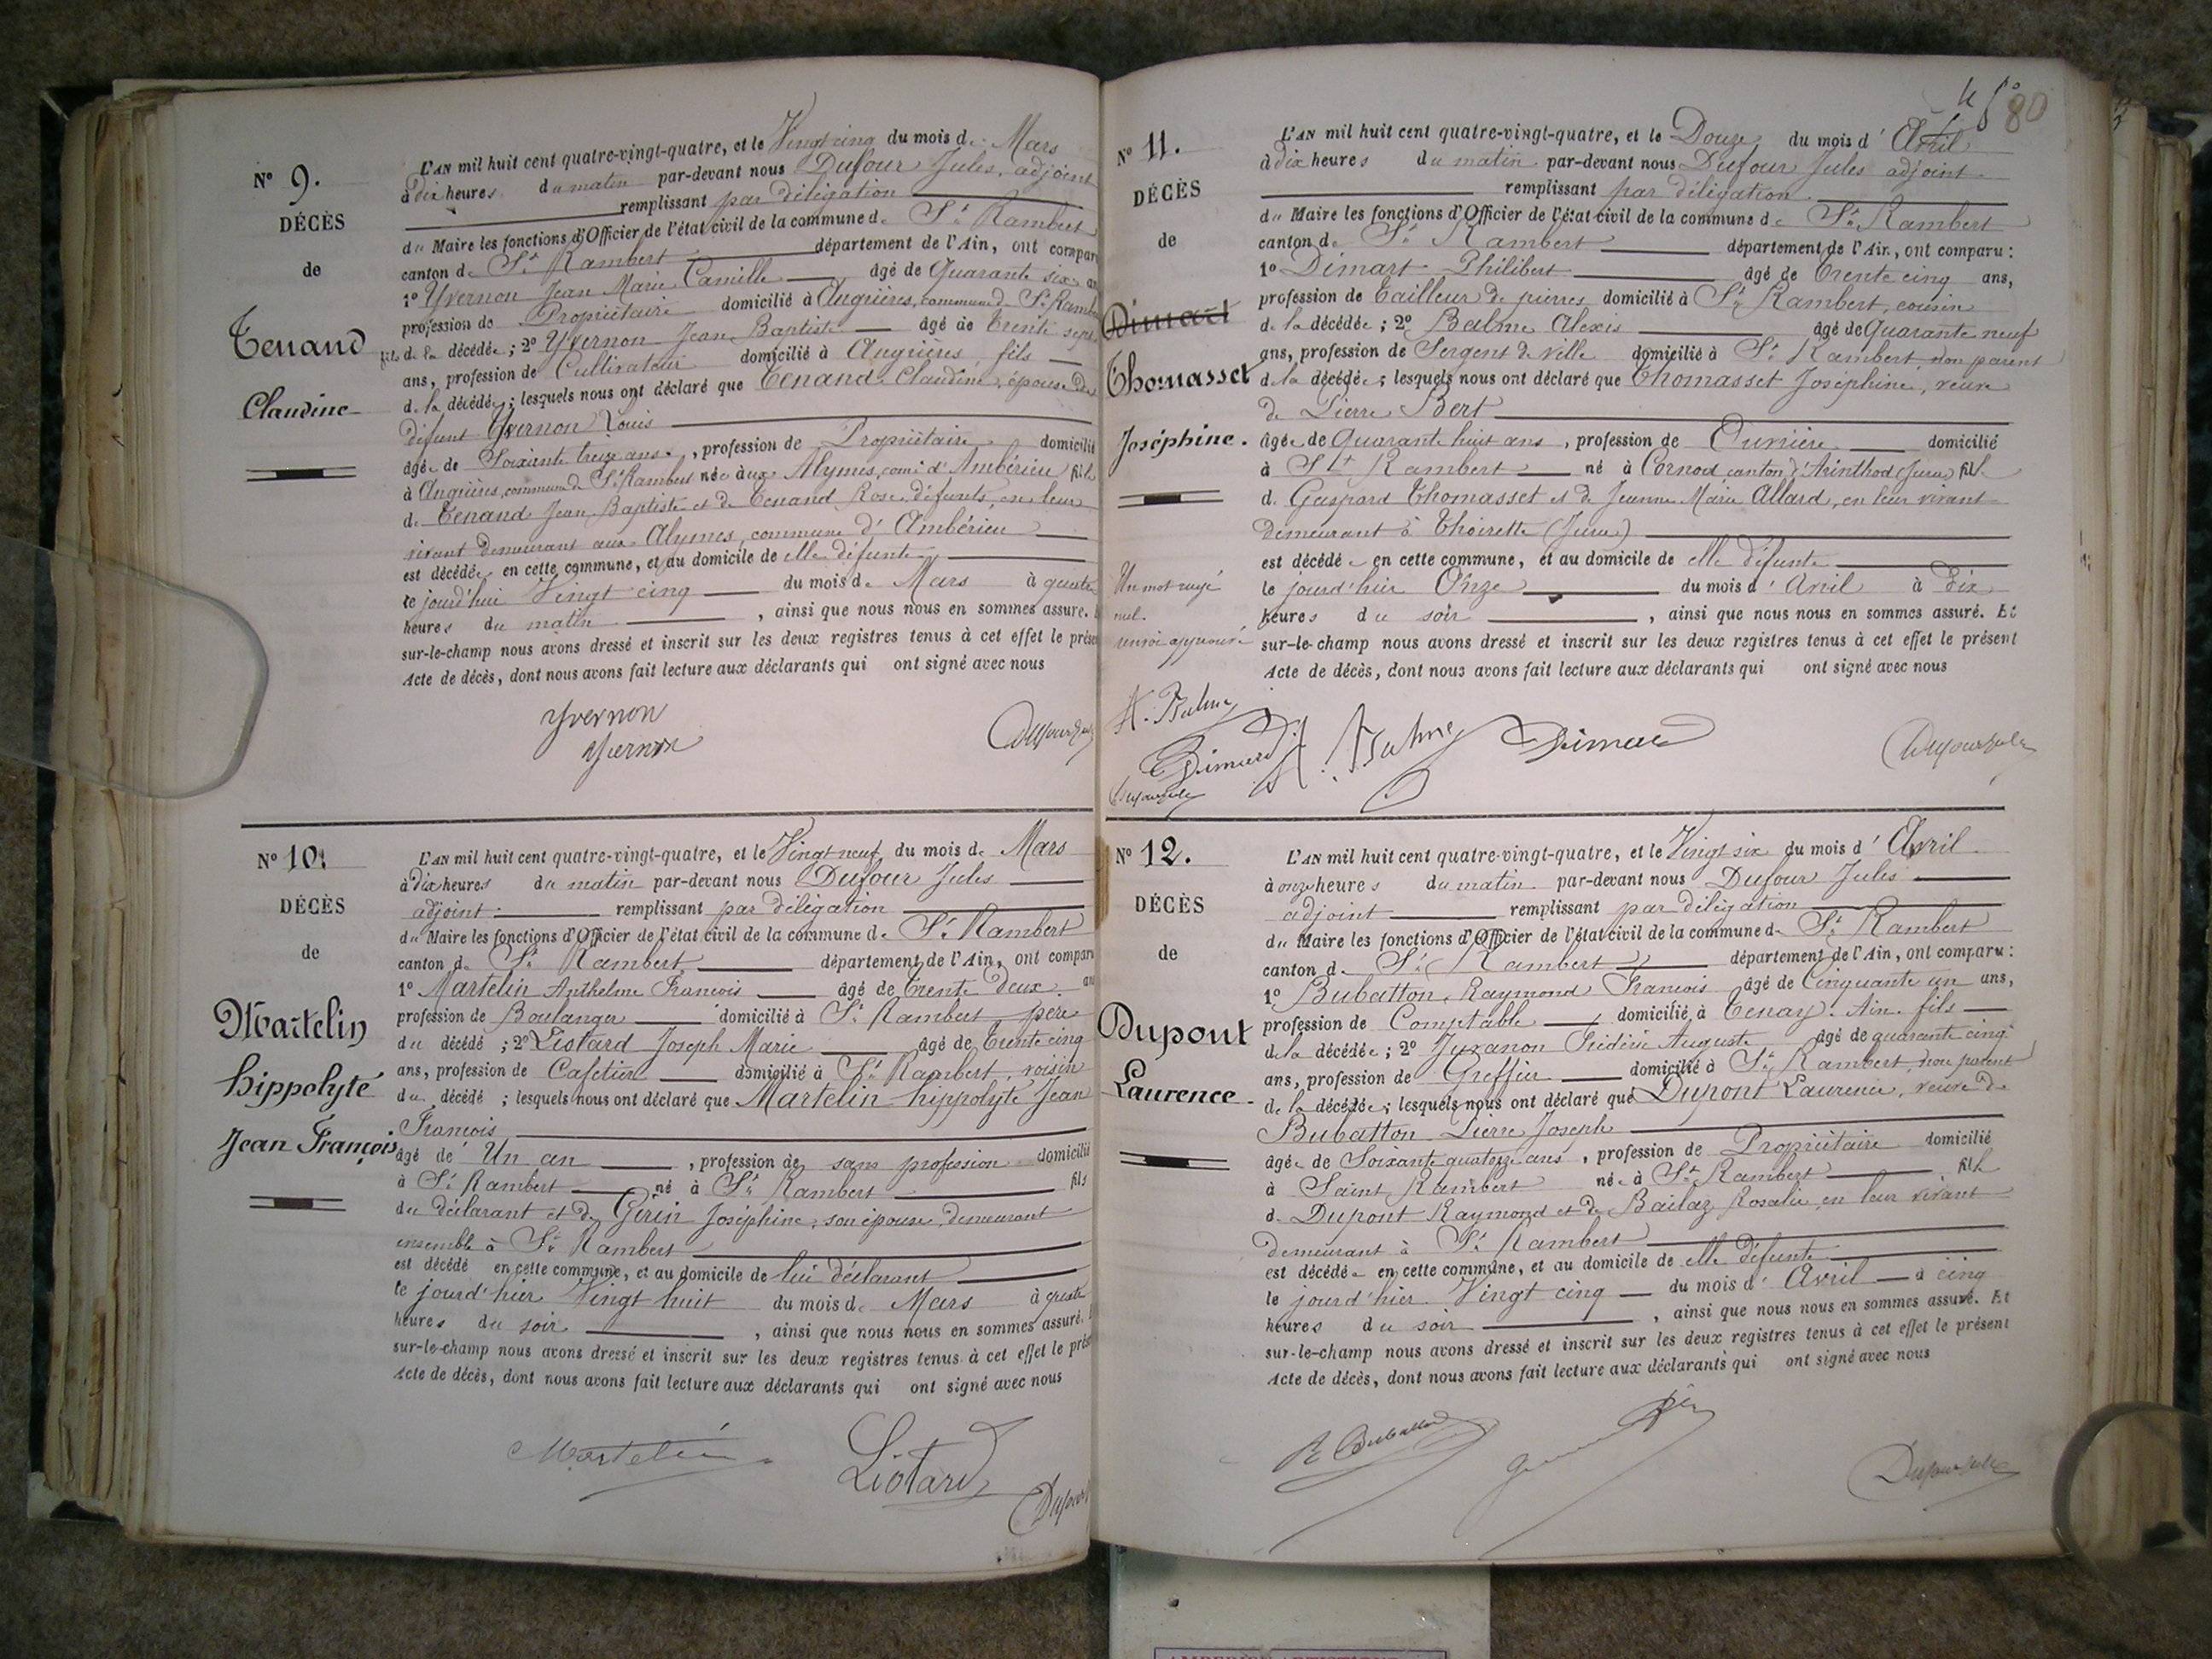 N° 9.
DÉCÈS
de
Tenand
Claudine
L'AN mil huit cent quatre-vingt-quatre, et le Vingt cinq du mois de Mars
à dix heures du matin par-devant nous Dufour Jules, adjoint
remplissant par délégation
du Maire les fonctions d'Officier de l'état civil de la commune de St Rambert
canton de St Rambert département de l'Ain, ont compar
1° Yvernon Jean Marie Camille âgé de Quarante six an
profession de Propriétaire domicilié à Angrières, commune de St Ramb
fils de la décédée ; 2° Yvernon Jean Baptiste âgé de Trente sept
ans, profession de Cultivateur domicilié à Angrières, fils
de la décédée ; lesquels nous ont déclaré que Tenand Claudine, épouse de
défunt Yvernon Louis
âgée de Soixante treize ans, profession de Propriétaire domicilié
à Angrières, commune de St Rambert née aux Alymes, come d'Ambérieu fille
de Tenand Jean Baptiste et de Tenand Rose, défunts, en leur
vivant demeurant aux Alymes, commune d'Ambérieu
est décédée en cette commune, et au domicile de elle défunte
le jourd'hui Vingt cinq du mois de Mars à quatre
heures du matin, ainsi que nous nous en sommes assuré.
sur-le-champ nous avons dressé et inscrit sur les deux registres tenus à cet effet le prése
Acte de décès, dont nous avons fait lecture aux déclarants qui ont signé avec nous
Yvernon
Yvernon
Dufour Jul
N° 10.
DÉCÈS
de
Martelin
hippolyte
Jean François
L'AN mil huit cent quatre-vingt-quatre, et le Vingt neuf du mois de Mars
à dix heures du matin par-devant nous Dufour Jules
adjoint remplissant par délégation
du Maire les fonctions d'Officier de l'état civil de la commune de St Rambert
canton de St Rambert département de l'Ain, ont compar
1° Martelin Anthelme François âgé de Trente deux an
profession de Boulanger domicilié à St Rambert, père
du décédé ; 2° Liotard Joseph Marie âgé de Trente cinq
ans, profession de Cafetier domicilié à St Rambert, voisin
du décédé ; lesquels nous ont déclaré que Martelin hippolyte Jean
François
âgé de Un an, profession de sans profession domicilié
à St Rambert né à St Rambert fils
du déclarant et de Gerin Joséphine, son épouse, demeurant
ensemble à St Rambert
est décédé en cette commune, et au domicile de lui déclarant
le jourd'hier Vingt huit du mois de Mars à quatre
heures du soir, ainsi que nous nous en sommes assuré.
sur-le-champ nous avons dressé et inscrit sur les deux registres tenus à cet effet le prés
Acte de décès, dont nous avons fait lecture aux déclarants qui ont signé avec nous
Martelin
Liotard
Dufour
80
N° 11.
DÉCÈS
de
Dimart
Thomasset
Joséphine.
Un mot rayé
nul.
renvoi approuvé
L'AN mil huit cent quatre-vingt-quatre, et le Douze du mois d'Avril
à dix heures du matin par-devant nous Dufour Jules adjoint
remplissant par délégation
du Maire les fonctions d'Officier de l'état civil de la commune de St Rambert
canton de St Rambert département de l'Ain, ont comparu :
1° Dimart Philibert âgé de Trente cinq ans,
profession de Tailleur de pierres domicilié à St Rambert, cousin
de la décédée ; 2° Balme Alexis âgé de quarante neuf
ans, profession de Sergent de ville domicilié à St Rambert, non parent
de la décédée ; lesquels nous ont déclaré que Thomasset Joséphine, veuve
de Pierre Bert
âgée de Quarante huit ans, profession de Ouvrière domicilié
à St Rambert né à Cornod canton d'Arinthod (Jura) fille
de Gaspard Thomasset et de Jeanne Marie Allard, en leur vivant
demeurant à Thoirette (Jura)
est décédée en cette commune, et au domicile de elle défunte
le jourd'hier Onze du mois d'Avril à Dix
heures du soir, ainsi que nous nous en sommes assuré. Et
sur-le-champ nous avons dressé et inscrit sur les deux registres tenus à cet effet le présent
Acte de décès, dont nous avons fait lecture aux déclarants qui ont signé avec nous
A. Balme
Dimard
Dufour Jules
A. Balme
Dimard
Dufour Jules
N° 12.
DÉCÈS
de
Dupont
Laurence
L'AN mil huit cent quatre-vingt-quatre, et le Vingt six du mois d'Avril
à onze heures du matin par-devant nous Dufour Jules
adjoint remplissant par délégation
du Maire les fonctions d'Officier de l'état civil de la commune de St Rambert
canton de St Rambert département de l'Ain, ont comparu :
1° Bubatton, Raymond François âgé de Cinquante un ans,
profession de Comptable domicilié à Tenay. Ain. fils
de la décédée ; 2° Juvanon Frédéric Auguste âgé de quarante cinq
ans, profession de Greffier domicilié à St Rambert, non parent
de la décédée ; lesquels nous ont déclaré que Dupont Laurence, veuve de
Bubatton Pierre Joseph
âgée de Soixante quatorze ans, profession de Propriétaire domicilié
à Saint Rambert née à St Rambert fille
de Dupont Raymond et de Bailaz Rosalie, en leur vivant
demeurant à St Rambert
est décédée en cette commune, et au domicile de elle défunte
le jourd'hier Vingt cinq du mois d'Avril à cinq
heures du soir, ainsi que nous nous en sommes assuré. Et
sur-le-champ nous avons dressé et inscrit sur les deux registres tenus à cet effet le présent
Acte de décès, dont nous avons fait lecture aux déclarants qui ont signé avec nous
R Bubatton
Dufour Jules